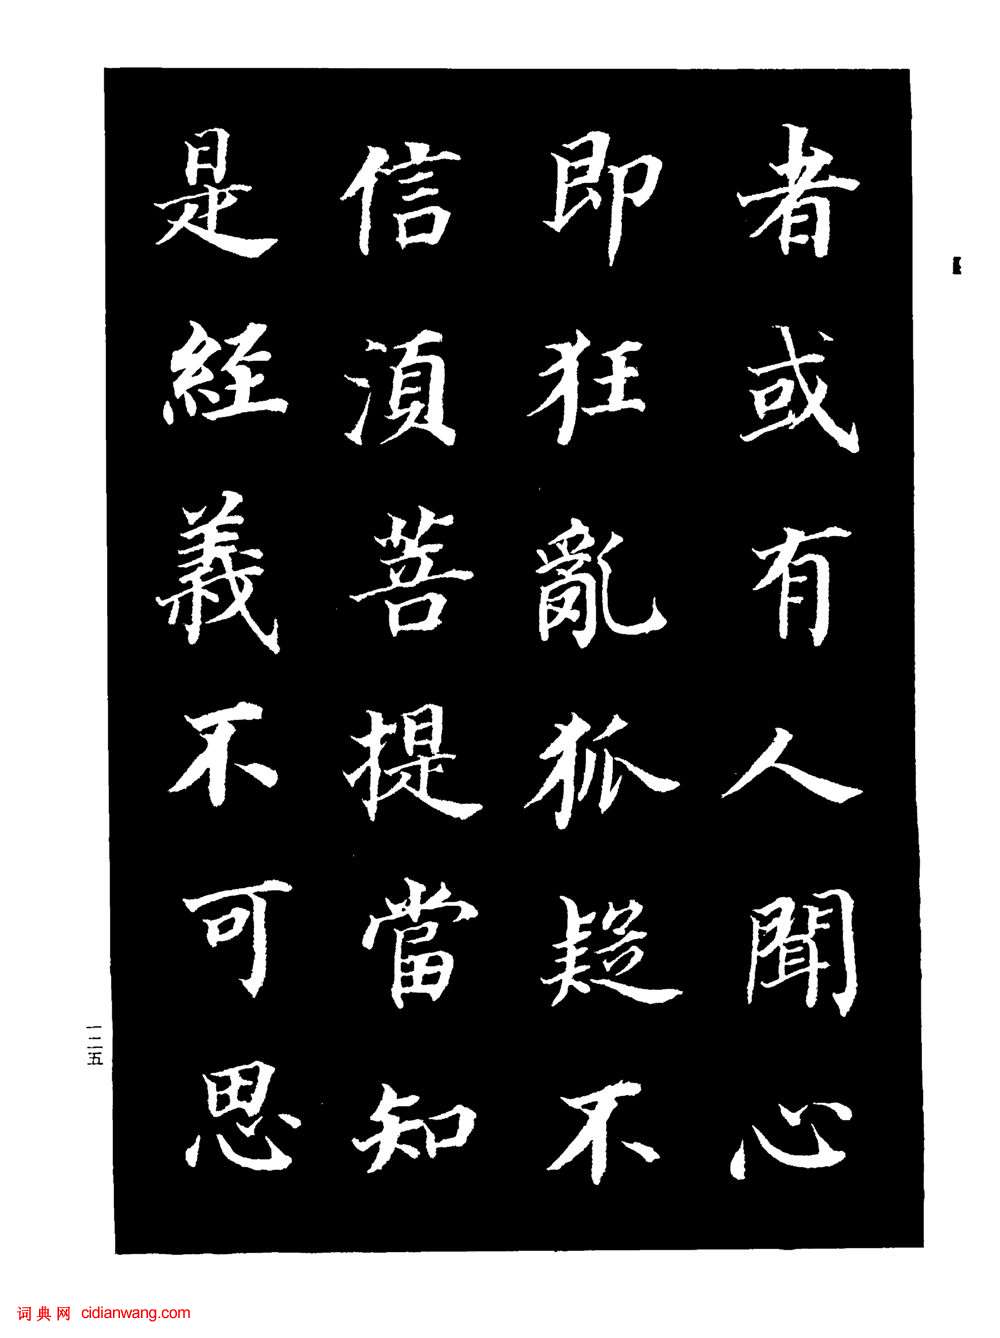 者或有人聞心
即狂亂狐疑不
信湏菩提當知
是經義不可思
一二五
词典网 cidianwang.com